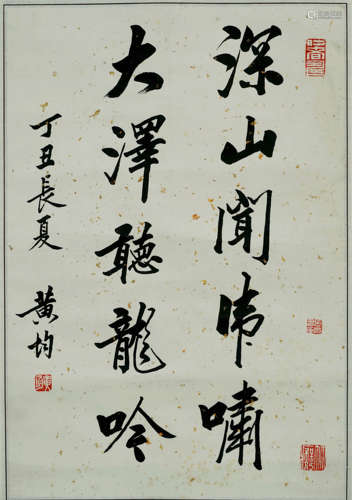 深山聞乕嘯
大澤聽龍吟
丁丑長夏 黄均